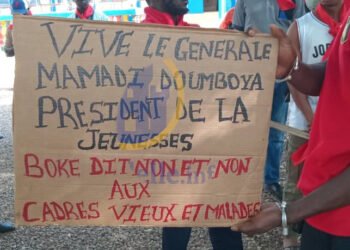 VIVE LE GENERALE
MAMADI DOUMBOYA
PRESIDENT DE LA
JEUNESSES
BOKE DIT NON ET NON
AUX
CADRES VIEUX ET MALADES